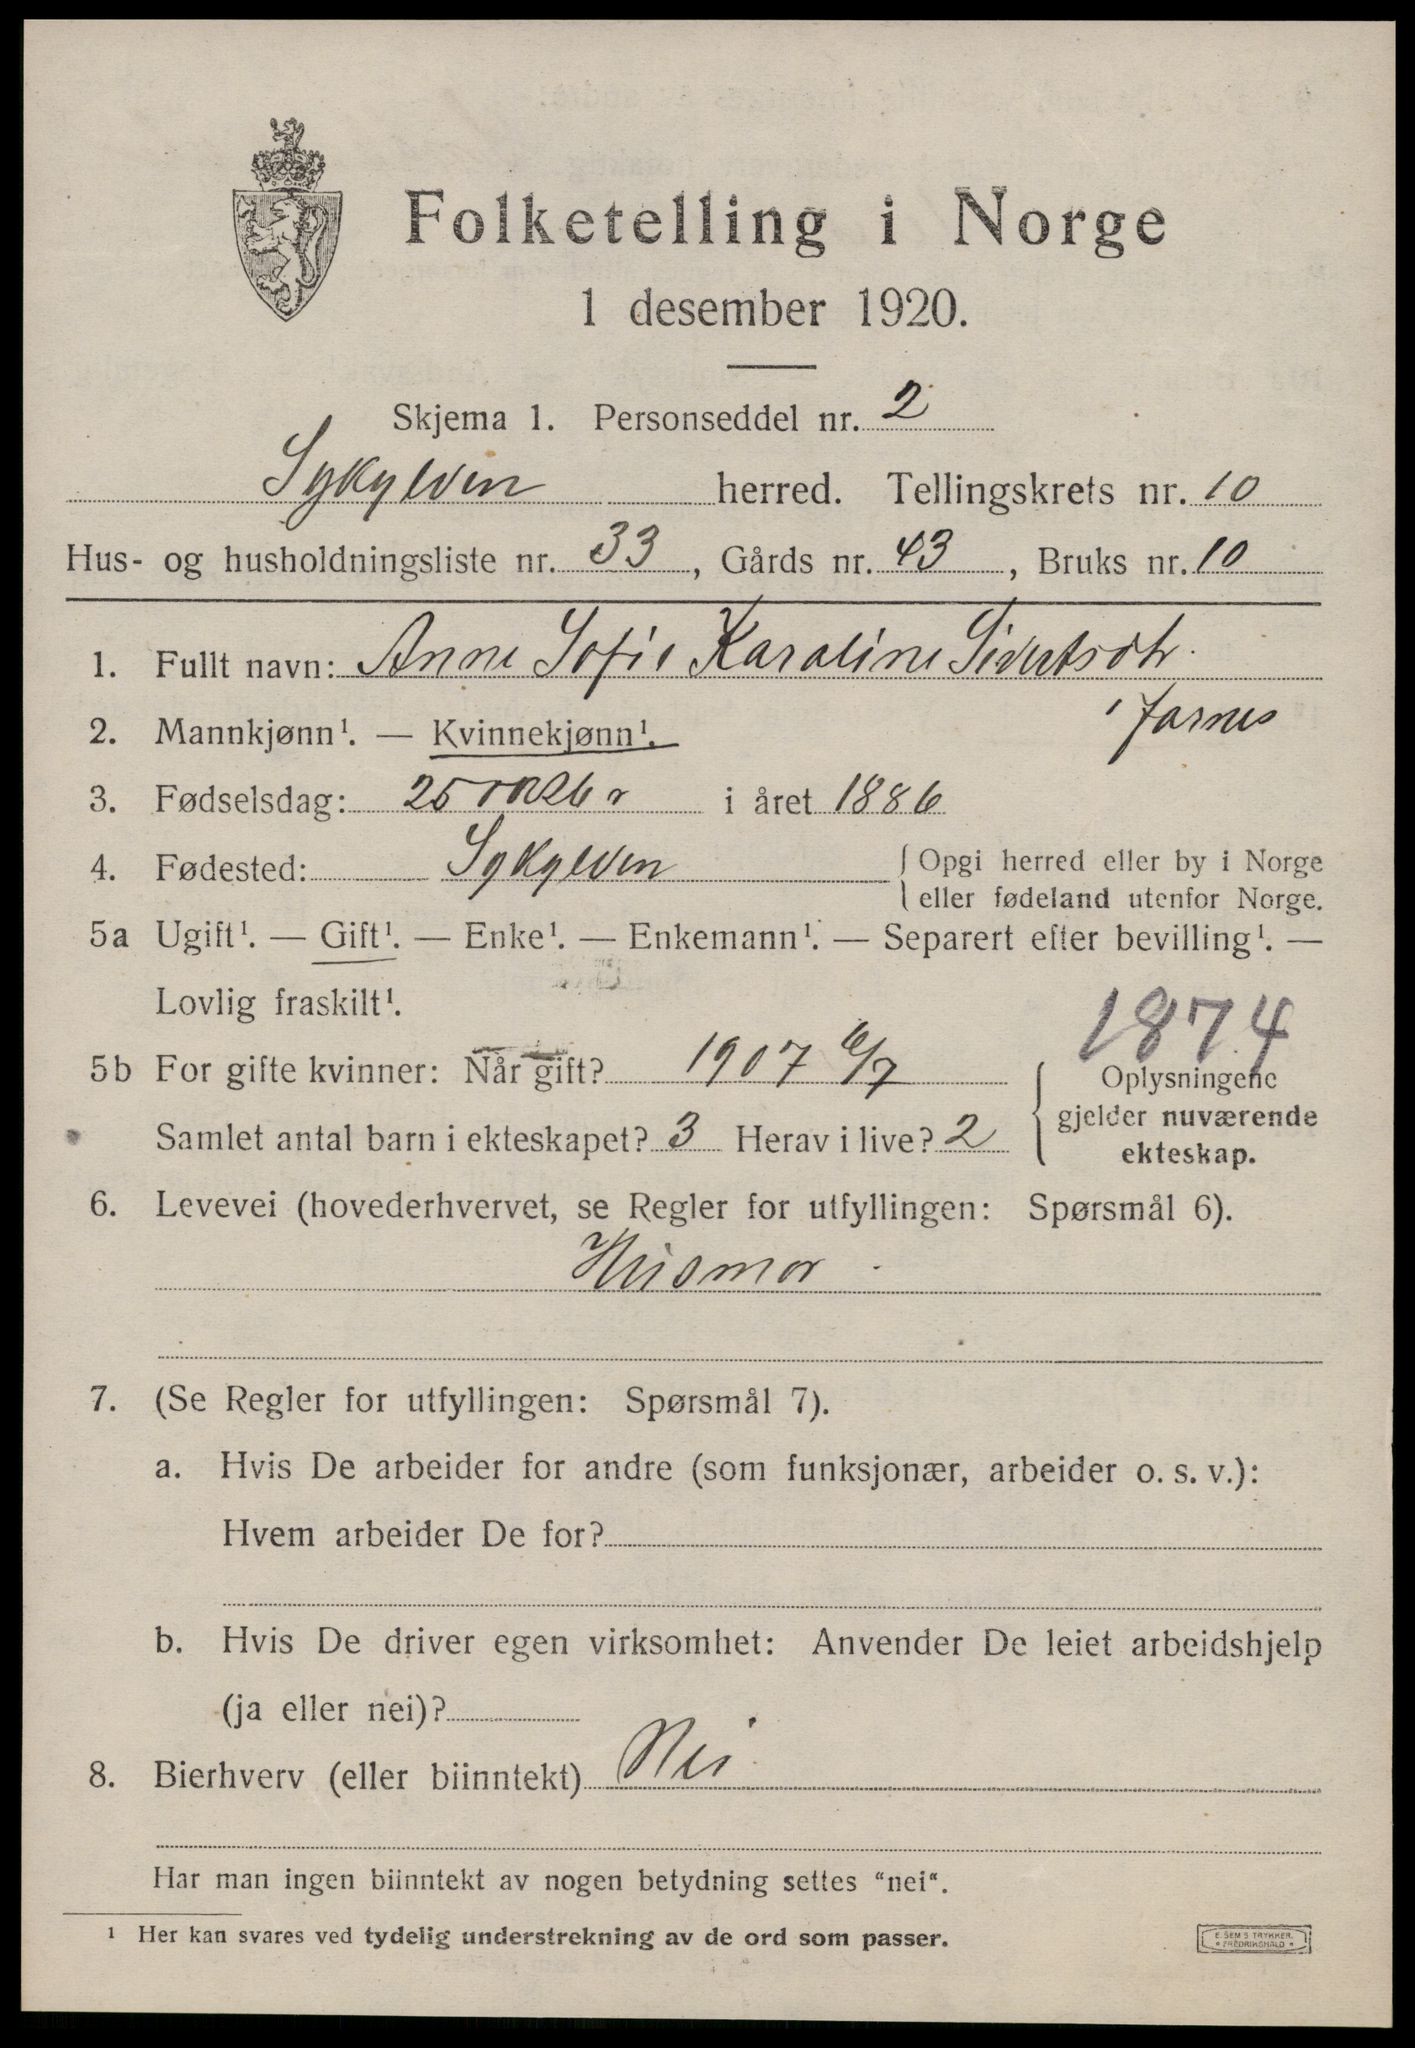 Folketelling i Norge
1 desember 1920.
Skjema 1. Personseddel nr. 2
Sykylven herred. Tellingskrets nr. 10
Hus- og husholdningsliste nr. 33, Gårds nr. 43, Bruks nr. 10
1. Fullt navn: Anne Sofie Karoline Sivertsdtr.
Jarnes
2. Mannkjønn¹. — Kvinnekjønn¹.
3. Fødselsdag: 25 oktbr i året 1886
4. Fødested: Sykylven { Opgi herred eller by i Norge
eller fødeland utenfor Norge.
5a Ugift¹. — Gift¹. — Enke¹. — Enkemann¹. — Separert efter bevilling¹. —
Lovlig fraskilt¹.
1874
5b For gifte kvinner: Når gift? 1907 6/7 { Oplysningene
gjelder nuværende
Samlet antal barn i ekteskapet? 3 Herav i live? 2
ekteskap.
6. Levevei (hovederhvervet, se Regler for utfyllingen: Spørsmål 6).
Husmor.
7. (Se Regler for utfyllingen: Spørsmål 7).
a. Hvis De arbeider for andre (som funksjonær, arbeider o. s. v.):
Hvem arbeider De for?
b. Hvis De driver egen virksomhet: Anvender De leiet arbeidshjelp
(ja eller nei)?
8. Bierhverv (eller biinntekt) Nei
Har man ingen biinntekt av nogen betydning settes "nei".
¹ Her kan svares ved tydelig understrekning av de ord som passer.
E. SEM'S TRYKKER.
* FREDRIKSHALD *